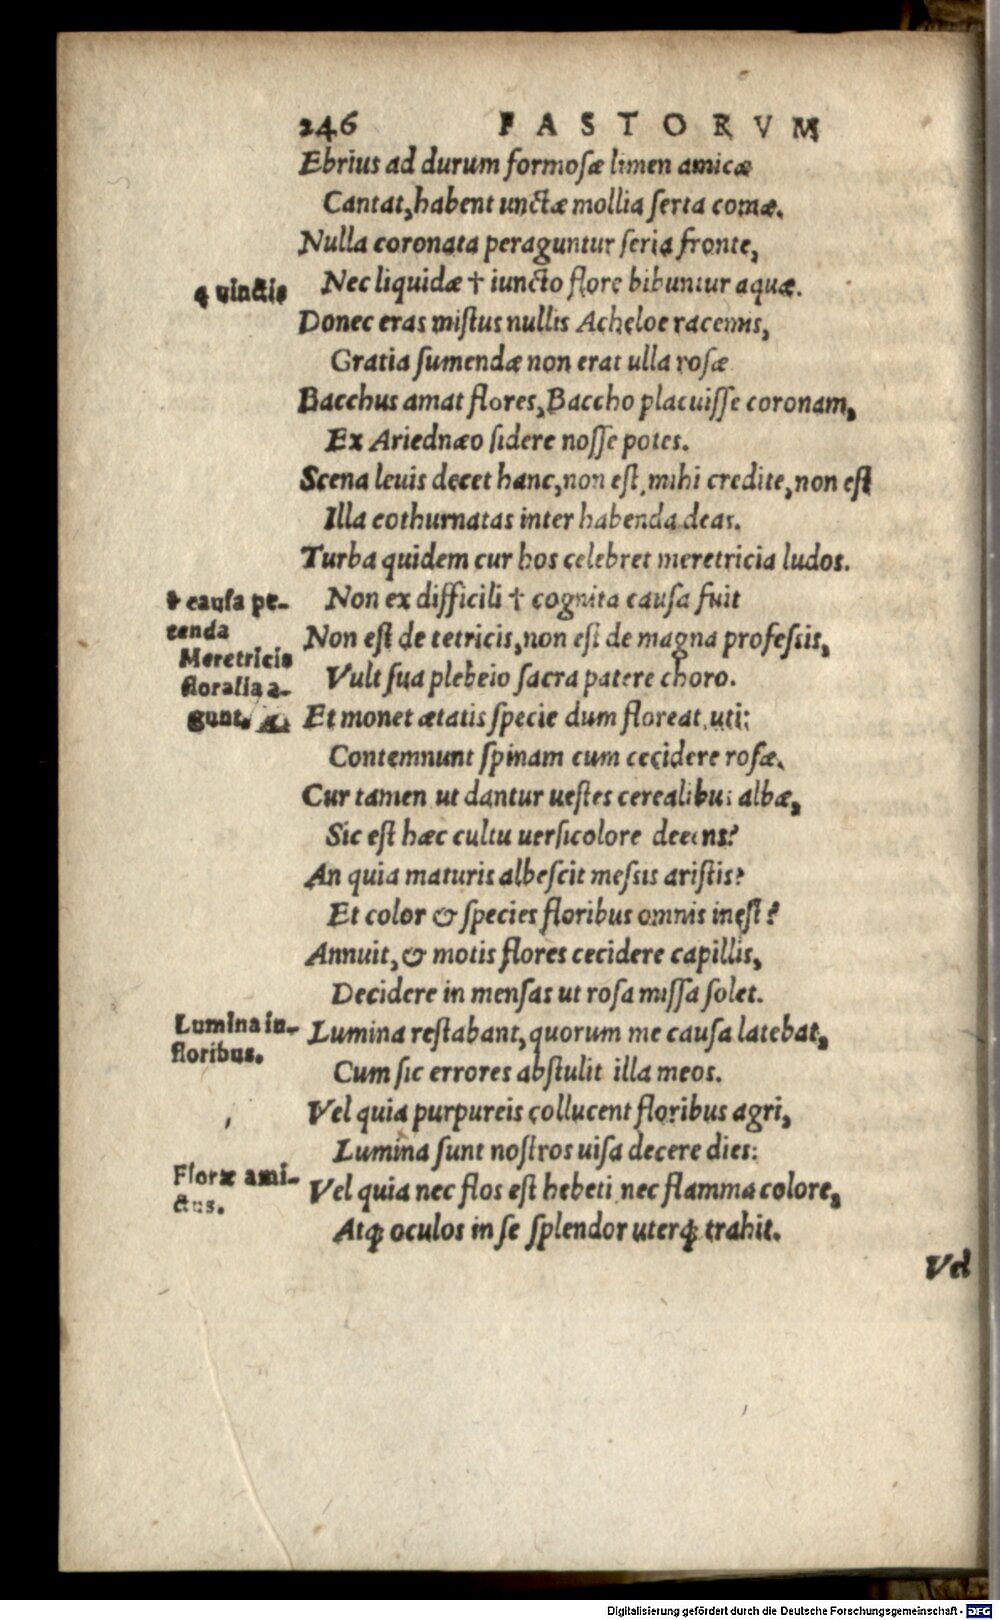 246 FASTORVM
Ebrius ad durum formoſæ limen amicæ
Cantat, habent unctæ mollia ſerta comæ.
Nulla coronata peraguntur ſeria fronte,
Nec liquidæ † iuncto flore bibuntur aquæ.
Donec eras miſtus nullis Acheloe racemis,
Gratia ſumendæ non erat ulla roſæ
Bacchus amat flores, Baccho placuiſſe coronam,
Ex Ariednæo ſidere noſſe potes.
Scena leuis decet hanc, non eſt, mihi credite, non eſt
Illa cothurnatas inter habenda deas.
Turba quidem cur hos celebret meretricia ludos.
Non ex difficili † cognita cauſa fuit
Non eſt de tetricis, non eſt de magna profeſsis,
Vult ſua plebeio ſacra patere choro.
Et monet ætatis ſpecie dum floreat, uti:
Contemnunt ſpinam cum cecidere roſæ.
Cur tamen ut dantur ueſtes cerealibus albæ,
Sic eſt hæc cultu uerſicolore decens?
An quia maturis albeſcit meſsis ariſtis?
Et color & ſpecies floribus omnis ineſt?
Annuit, & motis flores cecidere capillis,
Decidere in menſas ut roſa miſſa ſolet.
Lumina reſtabant, quorum me cauſa latebat,
Cum ſic errores abſtulit illa meos.
Vel quia purpureis collucent floribus agri,
Lumina ſunt noſtros uiſa decere dies:
Vel quia nec flos eſt hebeti nec flamma colore,
Atq; oculos in ſe ſplendor uterq; trahit.
Vel
uinctis
† cauſa pe-
tenda
Meretricis
floralia a-
gunt.
Lumina in-
floribus.
Floræ ami-
ctus.
Digitalisierung gefördert durch die Deutsche Forschungsgemeinschaft - DFG